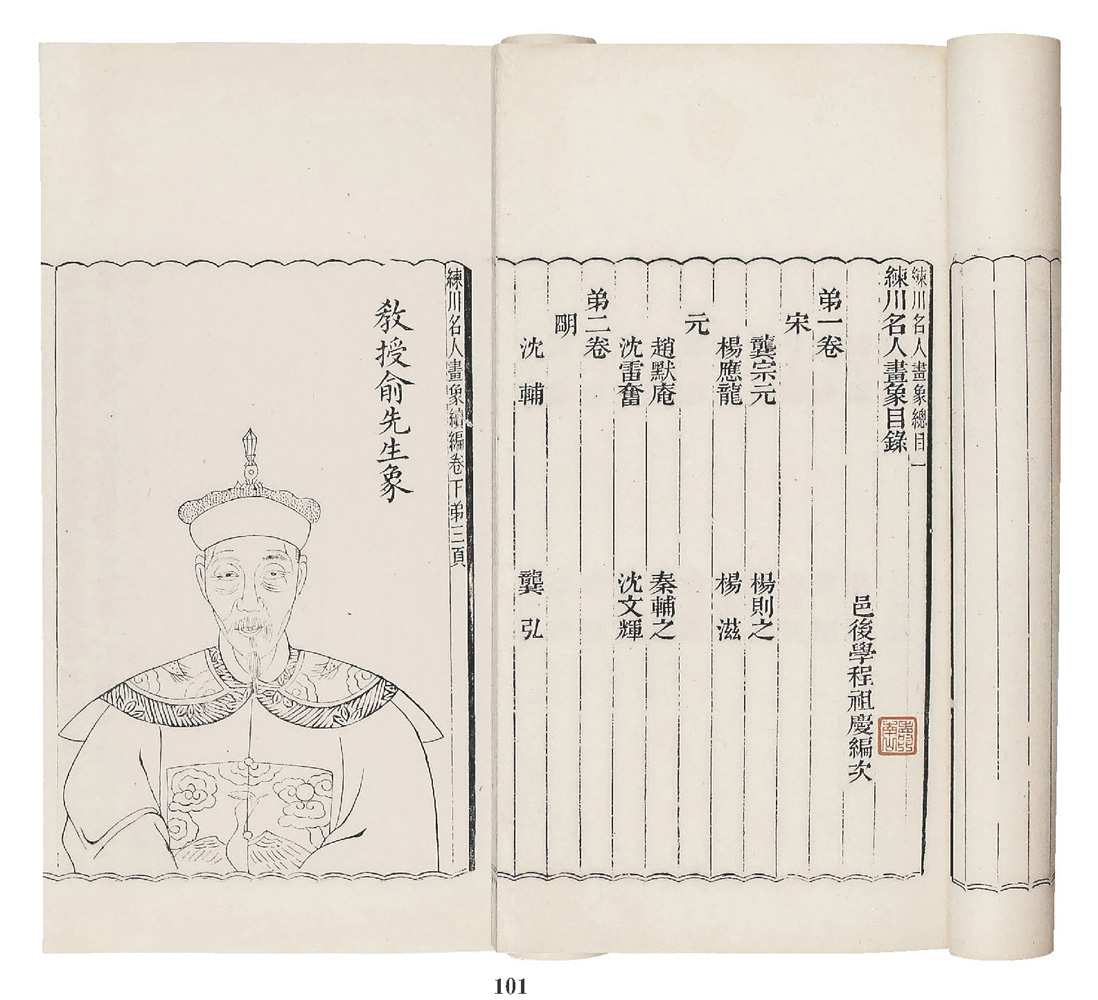 練川名人畫象總目一
練川名人畫象目錄
邑後學程祖慶編次
弟一卷
宋
龔宗元 楊則之
楊應龍 楊滋
元
趙默庵 秦輔之
沈雷奮 沈文輝
弟二卷
明
沈輔 龔弘
練川名人畫象續編卷下弟三頁
教授俞先生象
101